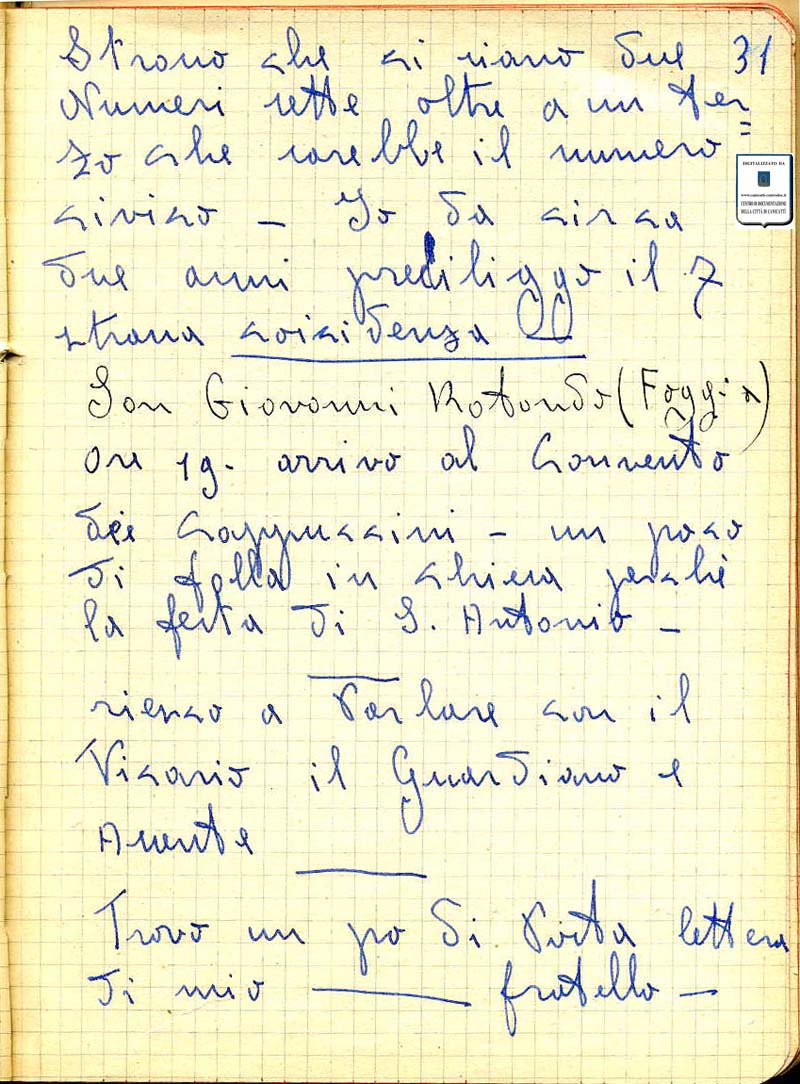 Strano che ci siano due 31
Numeri sette oltre a un ter=
zo che sarebbe il numero
civico – Io da circa
due anni prediliggo il 7
strana coicidenza
San Giovanni Rotondo (Foggia)
ore 19. arrivo al Convento
dei Cappuccini – un poco
di folla in chiesa perché
la festa di S. Antonio –
riesco a Parlare con il
Vicario il Guardiano e
Assente
Trovo un po di Posta lettera
di mio fratello –
DIGITALIZZATO DA
www.canicatti-centrodoc.it
CENTRO DI DOCUMENTAZIONE
DELLA CITTÀ DI CANICATTÌ